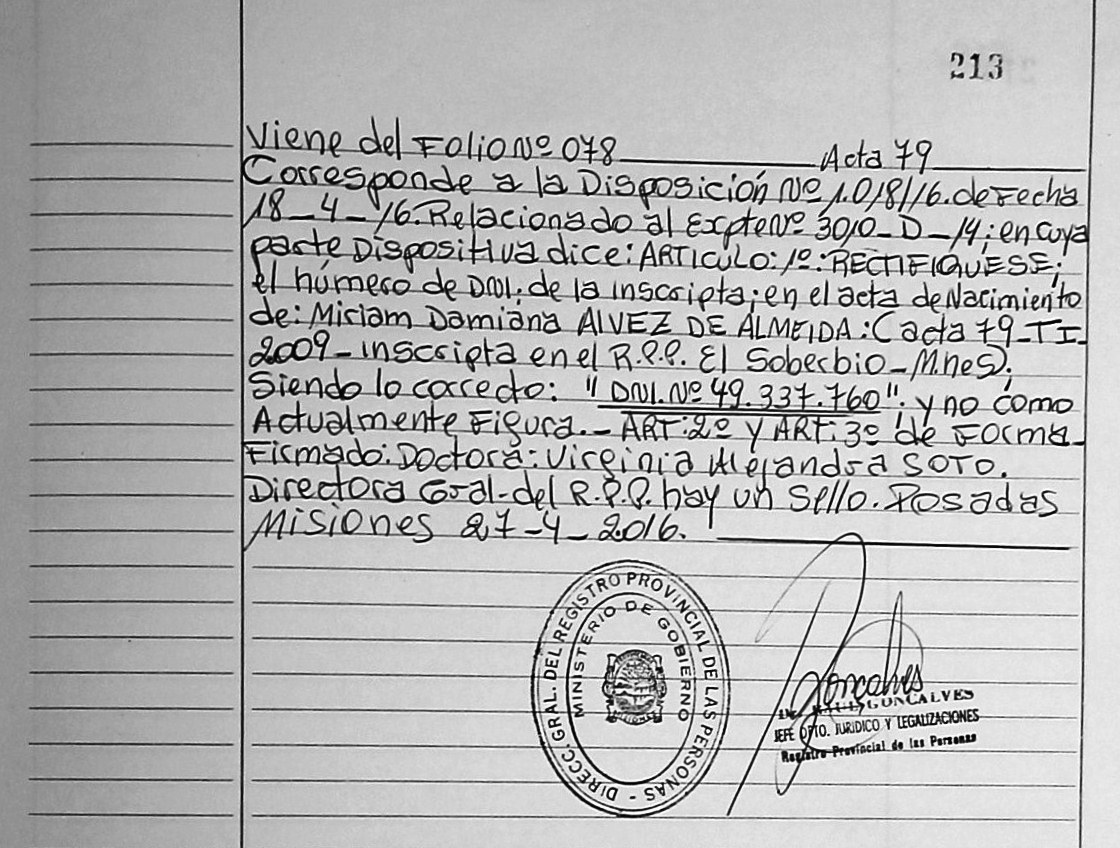 213
Viene del Folio Nº 078 Acta 79
Corresponde a la Disposición Nº 1.018/16. de Fecha
18-4-16. Relacionado al Expte Nº 3010-D-14; en cuya
parte Dispositiva dice: ARTICULO: 1º: RECTIFIQUESE;
el número de DNI. de la inscripta; en el acta de Nacimiento
de: Miriam Damiana ALVEZ DE ALMEIDA: (acta 79-TI-
2009-inscripta en el R.P.P. El Soberbio-Mnes);
Siendo lo correcto: "DNI. Nº 49.337.760". y no como
Actualmente Figura.- ART: 2º y ART: 3º de Forma-
Firmado: Doctora: Virginia Alejandra SOTO.
Directora Gral-del R.P.P. hay un Sello. Posadas
Misiones 27-4-2016.
DIRECC. GRAL. DEL REGISTRO PROVINCIAL DE LAS PERSONAS -
MINISTERIO DE GOBIERNO
Goncalves
GONCALVES
JEFE DPTO. JURIDICO Y LEGALIZACIONES
Registro Provincial de las Personas